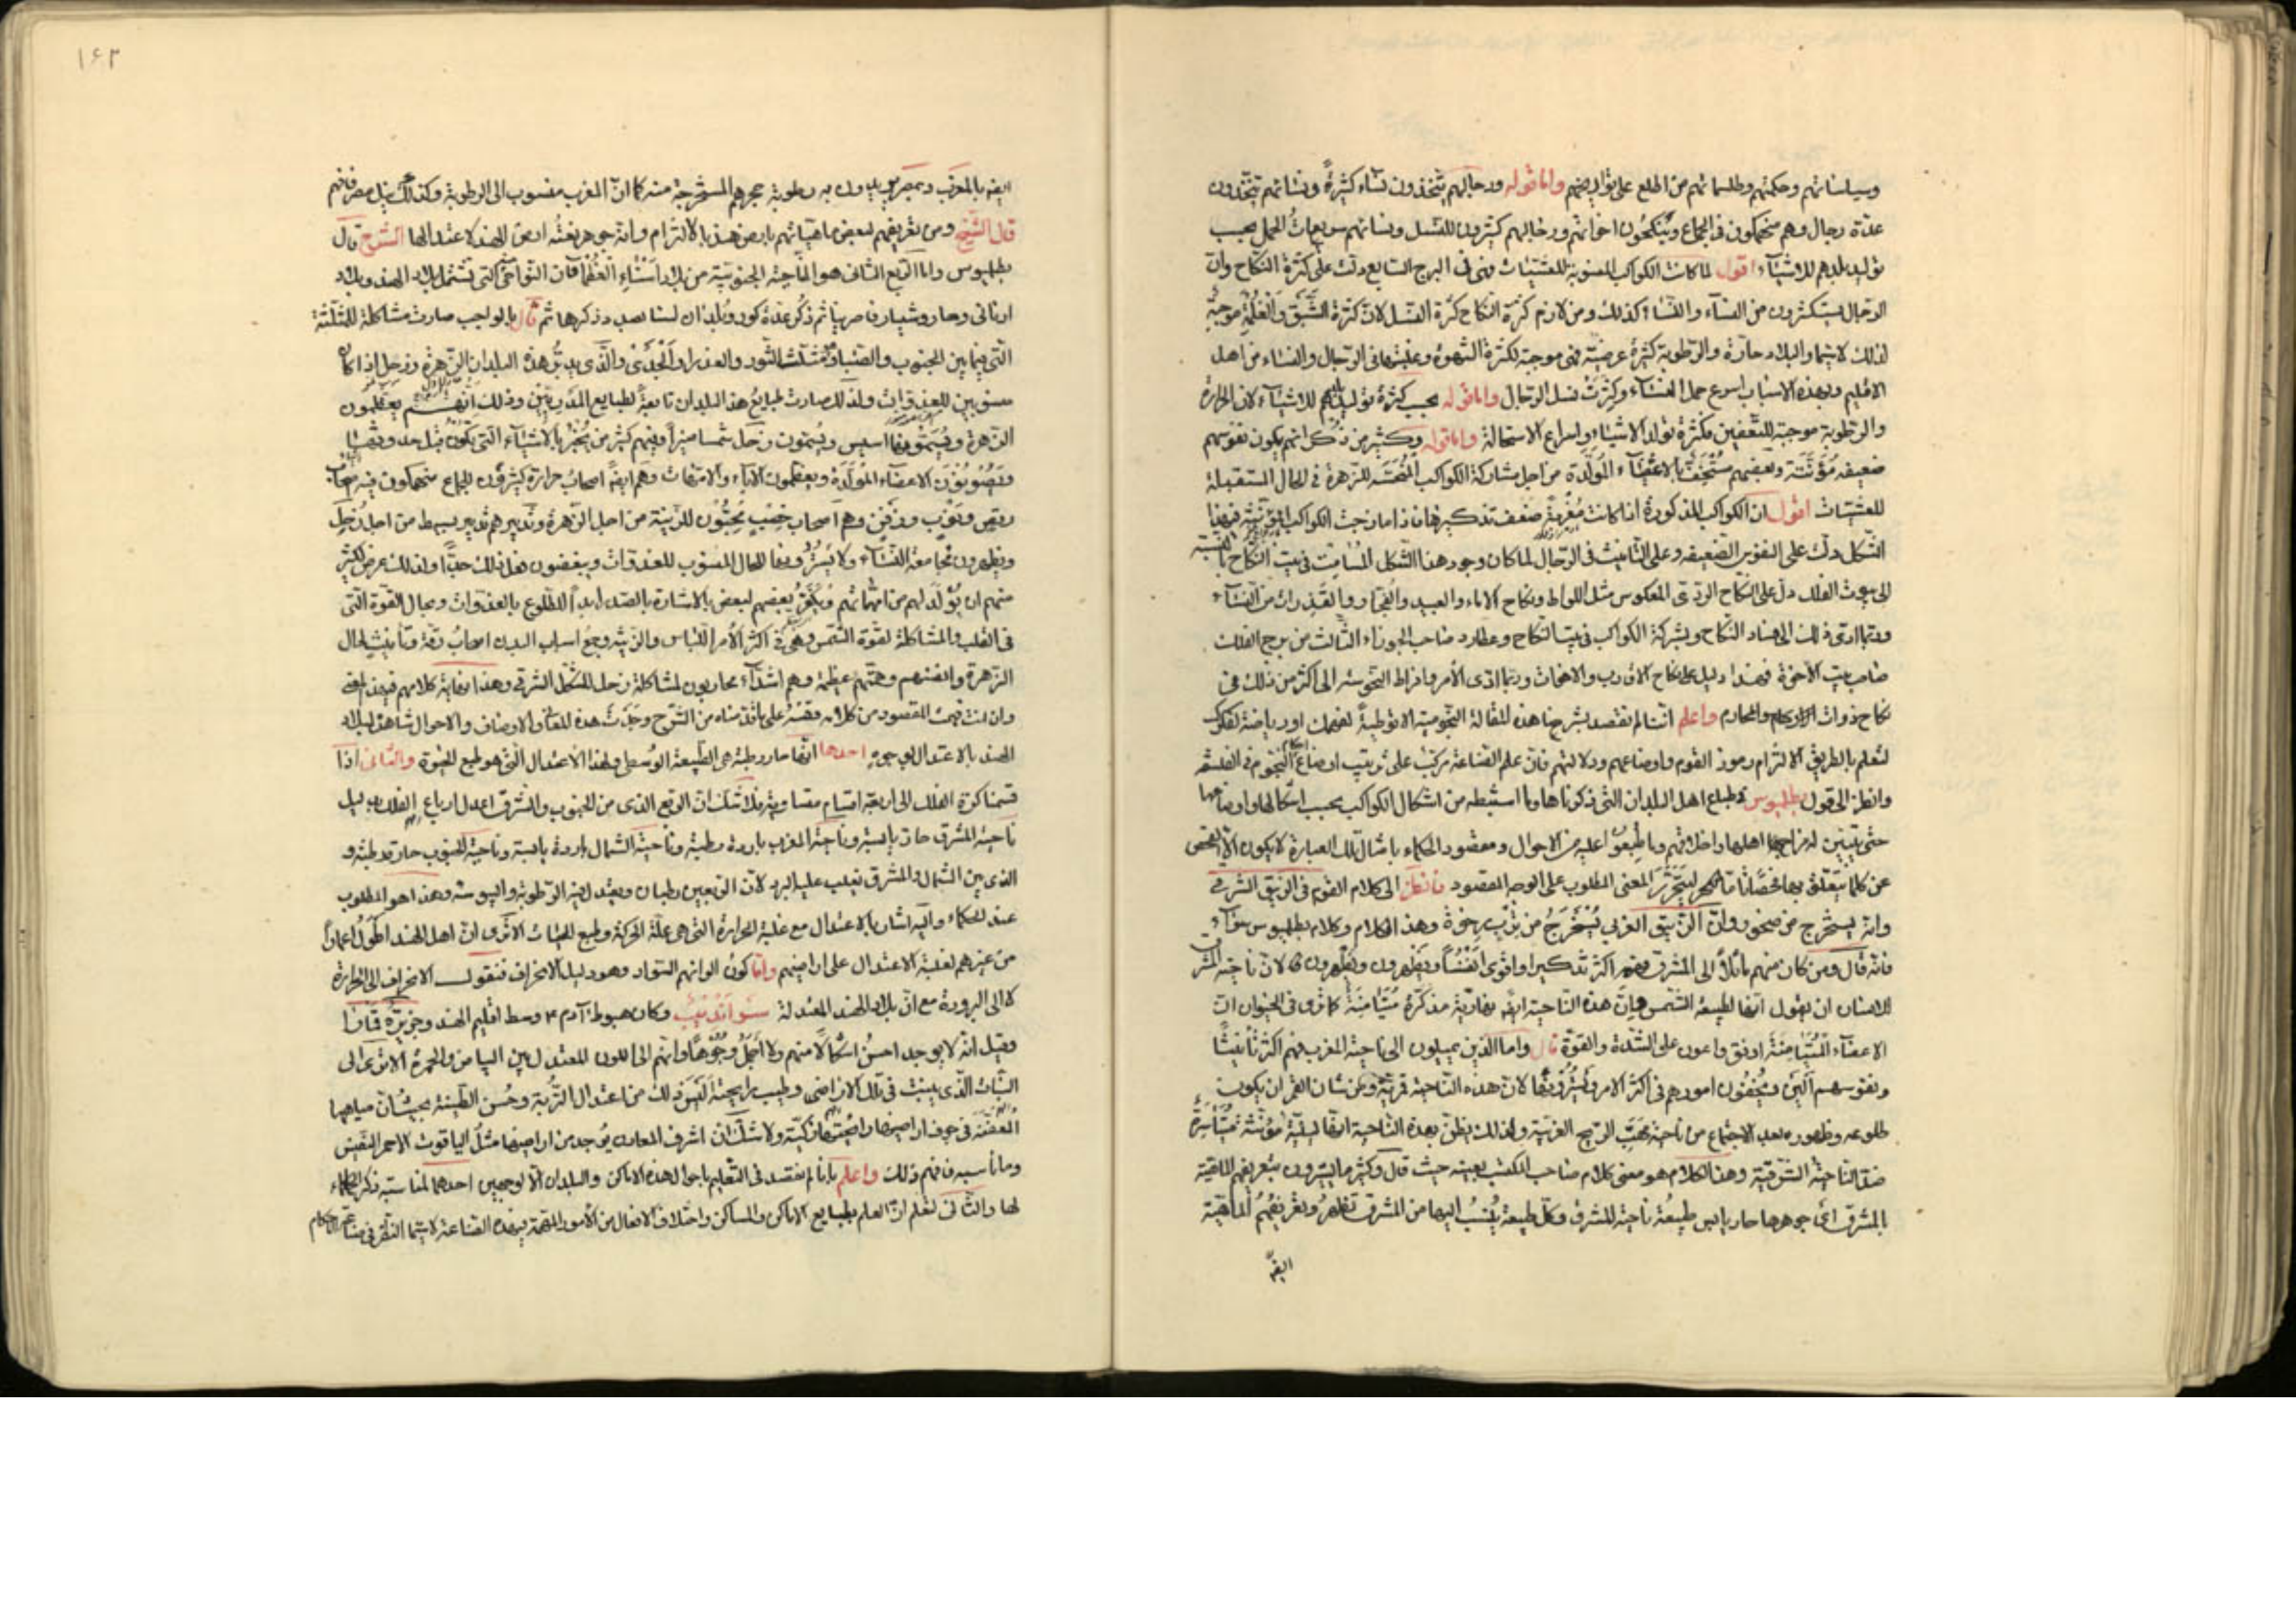 وسياساتهم وحكمتهم وطلسماتهم من اطلع على تواريخهم واما قوله ورجالهم يتخذون نساء كثيرة ونسائهم يتخذون
عدة رجال وهم منهمكون في الجماع وينكحون اخواتهم ورجالهم كثيرون للنسل ونسائهم سريعات الحمل بحسب
توليد بلدهم للاشياء اقول لما كانت الكواكب المنسوبة للعشيات فهي في البرج السابع دلت على كثرة النكاح وان
الرجال يستكثرون من النساء والنساء كذلك ومن لازم كثرة النكاح كثرة النسل لان كثرة الشبق والغلمة موجبة
لذلك لاسيما والبلاد حارة والرطوبة كثيرة عرضية فهي موجبة لكثرة الشهوة وغلبتها في الرجال والنساء من اهل
الاقليم وبهذه الاسباب اسرع حمل النساء وكثرت نسل الرجال واما قوله بحسب كثرة توليد بلدهم للاشياء لان الحرارة
والرطوبة موجبة للتعفين فكثرة تولد الاشياء واسراع الاستحالة واما قوله وكثير من ذكرانهم يكون نفوسهم
ضعيفة مؤنثة وبعضهم مستخف بالاعضاء المولدة من اجل مشاركة الكواكب المنحسة للزهرة في الحال المستقبلة
للعشيات اقول ان الكواكب المذكورة اذا كانت مغربة ضعف تذكيرها فاذا مازجت الكواكب المؤنثة في هذا
الشكل دلت على النفوس الضعيفة وعلى التانيث في الرجال لما كان وجود هذا الشكل المسامت في بيت النكاح بالنسبة
الى بيوت الفلك دل على النكاح الردي المعكوس مثل اللواط ونكاح الاماء والعبيد والفجار والقذرات من النساء
وربما ادى ذلك الى فساد النكاح وبشركة الكواكب في بيت النكاح وعطارد صاحب الجوزاء الثالث من برج الفلك
صاحب بيت الاخوة فهذا دليل على نكاح الاقارب والاخوات وربما ادى الامر وافراط النحوسة الى اكثر من ذلك في
نكاح ذوات الارحام والمحارم واعلم اننا لم نقصد بشرحنا هذه المقالة النجومية الا توطئة لفهمك او رياضة لفكرك
لتعلم بالطريق الالتزام رموز القوم واوضاعهم ودلالتهم فان علم الصناعة مركب على ترتيب اوضاع احكام النجوم في الفلسفة
وانظر الى قول بطليموس لطباع اهل البلدان التي ذكرناها وما استنبطه من اشكال الكواكب بحسب اشكالها واوضاعها
حتى تبين له مزاج اهلها واخلاقهم وما طبعوا عليه من الاحوال ومقصود الحكماء بامثال تلك العبارة لا يكون الا الفحص
عن كلما يتعلق بها فحصا تاما ليتحرر المعنى المطلوب على الوجه المقصود فانظر الى كلام القوم في الزيبق الشرقي
وانه يستخرج من صخور وان الزيبق الغربي يستخرج من ترب رخوة وهذا الكلام وكلام بطليموس سواء
فانه قال ومن كان منهم مائلا الى المشرق فهم اكثر تذكيرا واقوى انفسا ويظهرون ويظهرون لان ناحية المشرق
للانسان ان يقول انها لطبيعة الشمس فان هذه الناحية ايضا نهارية مذكرة متيامنة كما نرى في الحيوان ان
الاعضاء المتيامنة اوفق واعون على الشدة والقوة قال واما الذين يميلون الى ناحية المغرب فهم اكثر تانيثا
ونفوسهم الين ويخفون امورهم في اكثر الامر ويسترونها لان هذه الناحية قمرية ومن شان القمر ان يكون
طلوعه وظهوره بعد الاجتماع من ناحية مهب الريح الغربية ولذلك يظن بهذه الناحية انها ليلية مؤنثة متياسرة
ضد الناحية الشرقية وهذا الكلام هو معنى كلام صاحب المكتسب بعينه حيث قال وكثير ما يشيرون بتعريفهم الماهية
بالمشرق اي جوهرها حار يابس طبيعة ناحية المشرق وكل طبيعة ينسب اليها من المشرق تظهر وتعريفهم الماهية
ايضا
١٤٢
ايضا بالمغرب وبمصر يريدون به رطوبة حجرهم المستخرجة منه كما ان المغرب منسوب الى الرطوبة وكذلك نيل مصر فافهم
قال الشيخ ومن تعريفهم لبعض ماهياتهم بارض هند بالالتزام وانه جوهر نعته ارض الهند لاعتدالها الشرح قال
بطليموس واما الربع الثاني هو الناحية الجنوبية من بلاد اسياء العظمى فان النواحي التي تشتمل بلاد الهند وبلاد
ثم ذكر عدة كور وبلدان لسنا بصدد ذكرها ثم قال بالواجب صارت مشاكلة للمثلثة
التي فيما بين الجنوب والصبا ومثلث الثور والعذراء والجدي والذي يدبر هذه البلدان الزهرة وزحل اذا كانا
منسوبين للغدوات ولذلك صارت طبايع هذه البلدان تابعة لطبايع المدبرين وذلك انهم يعظمون
الزهرة ويسمونها اسيس ويسمون زحل شمسا منيرا وفيهم كثير من يخبر بالاشياء التي تكون قبل حدوثها
ويصونون الاعضاء المولدة ويعظمون الاباء والامهات وهم ايضا اصحاب حرارة كثيرون للجماع منهمكون فيه اصحاب
رقص وتوثب وزفن وهم اصحاب خضب يحبون للزينة من اجل الزهرة وتدبيرهم تدبير بسيط من اجل زحل
ويظهرون مجامعة النساء ولا يسترونها للحال المنسوب للغدوات ويبغضون فعل ذلك جدا ولذلك عرض لكثير
منهم ان يولد لهم من امهاتهم ويكفر بعضهم لبعض بالاشارة بالصدر ابدا للطلوع بالغدوات وبحال القوة التي
في القلب والمشاكلة لقوة الشمس وهي في اكثر الامر اللباس والزينة وجميع اسباب البدن اصحاب رقة وتانيث لحال
الزهرة وانفسهم وهمتهم عظيمة وهم اشداء محاربون لمشاكلة زحل للشكل الشرقي وهذا نهاية كلامهم فيه
وان انت فهمت المقصود من كلامه وقسته على ما قدمناه من الشرح وجدت هذه المعاني والاوصاف والاحوال شاهدة لبلاد
الهند بالاعتدال بوجوه احدها انها حارة رطبة هي الطبيعة الوسطى ولهذا الاعتدال الذي هو طبع الحيوة والثاني اذا
قسمنا كرة الفلك الى اربعة اقسام متساوية فلا شك ان الربع الذي من الجنوب والشرق اعدل ارباع الفلك بدليل
ناحية المشرق حارة يابسة وناحية المغرب باردة رطبة وناحية الشمال باردة يابسة وناحية الجنوب حارة رطبة و
الذي بين الشمال والمشرق يغلب عليه البرد لان الربعين رطبان ويعتدل فيه الرطوبة واليبوسة وهذا هو المطلوب
عند الحكماء واليه اشار بالاعتدال مع غلبة الحرارة التي هي علة الحركة وطبع الحياة الا ترى ان اهل الهند اطول اعمارا
من غيرهم لغلبة الاعتدال على اراضيهم واما كون الوانهم السواد وهو دليل الانحراف فنقول الانحراف الى الحرارة
لا الى البرودة مع ان بلاد الهند المعتدلة سرانديب وكان هبوط آدم ٤ وسط اقليم الهند وجزيرة
وقيل انه لا يوجد احسن اشكالا منهم ولا اجمل وجوها وانهم الى اللون المعتدل بين البياض والحمرة الا ترى الى
النبات الذي ينبت في تلك الاراضي وطيب رايحته اليس ذلك من اعتدال التربة وحسن الطينة بحيث ان مياهها
المعفنة في جوف اراضيها زكية ولا شك ان اشرف المعادن يوجد من اراضيها مثل الياقوت الاحمر النفيس
وما ناسبه فافهم ذلك واعلم باننا لم نقصد في التعليم باحوال هذه الاماكن والبلدان الا لوجهين احدهما لمناسبة ذكر الحكماء
لها والثاني لتعلم ان العلم بطبايع الاماكن والمساكن واختلاف الافعال من الامور المهمة بهذه الصناعة لاسيما النظر في صناعة الاحكام